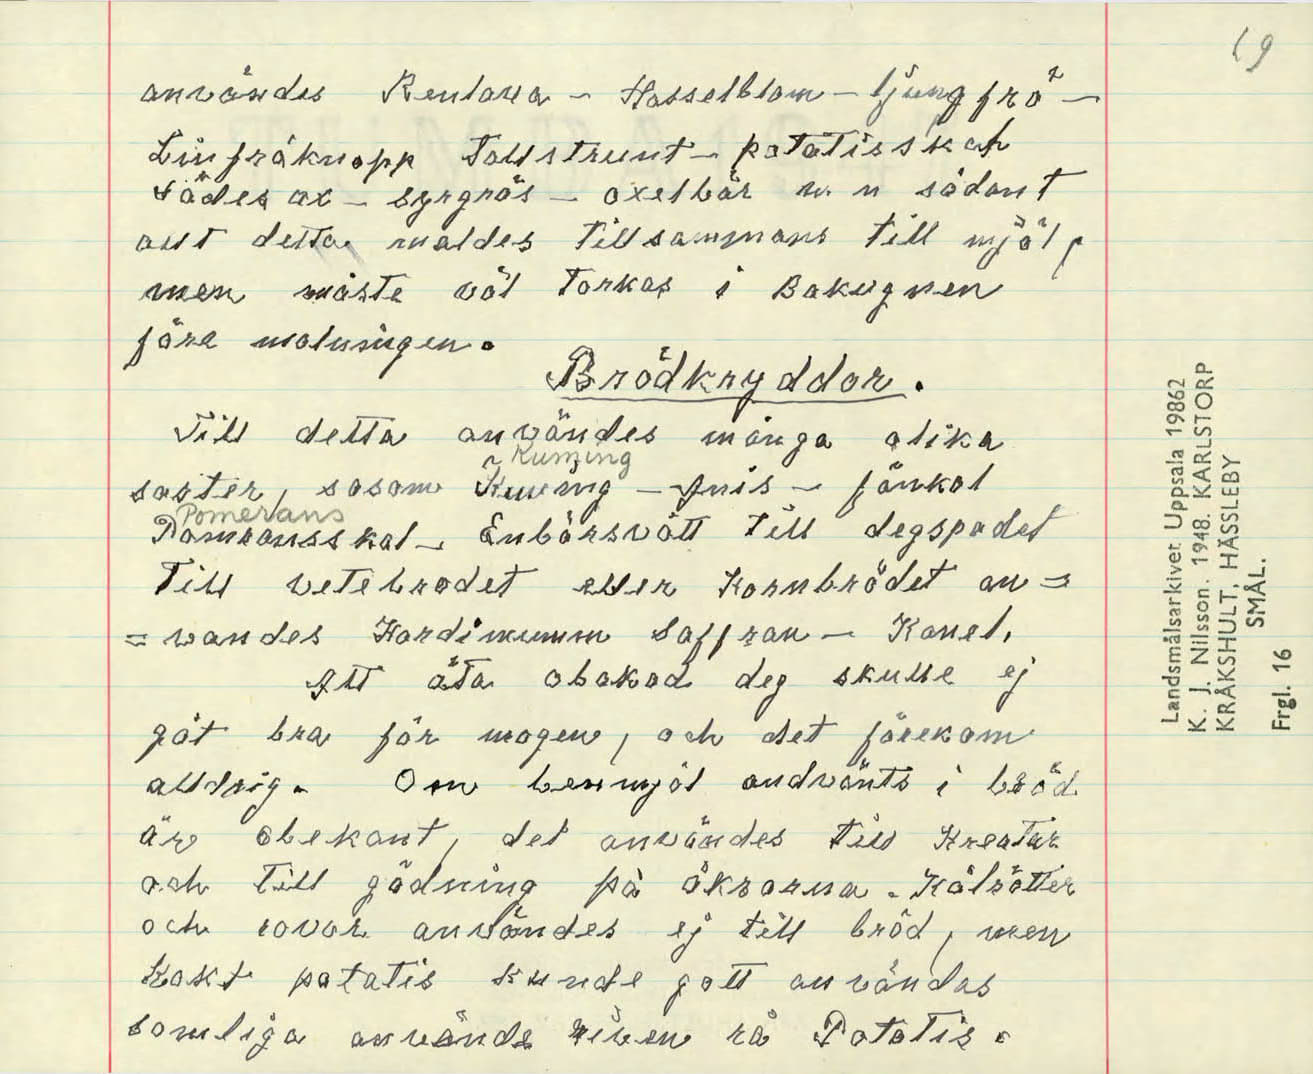 19
användes Renlava - Hasselblom - ljungfrö -
Linfröknopp Tallstrunt - potatisskal
Sädes ax - syrgräs - oxelbär m. m sådant
allt detta maldes tillsammans till mjöl,
men måste väl torkas i Bakugnen
före malningen.
Brödkryddor.
Till detta användes många olika
Kuming
sorter, såsom Kuming - Anis - fänkol
Pomerans
Pomransskal - Enbärsvätt till degspadet
Till vetebrodet eller Kornbrödet an =
= vandes Kardimumm Saffran - Kanel.
Att äta obakad deg skulle ej
gåt bra för magen, och det förekom
alldrig. Om benmjöl andvänts i bröd
är obekant, det användes till Kreatur
och till gödning på åkrarna. Kålrötter
och rovor användes ej till bröd, men
Kokt potatis kunde gott användas
somliga använde även rå Potatis.
Landsmålsarkivet Uppsala 19862
K. J. Nilsson. 1948. KARLSTORP
KRÅKSHULT, HÄSSLEBY
SMÅL.
Frgl. 16